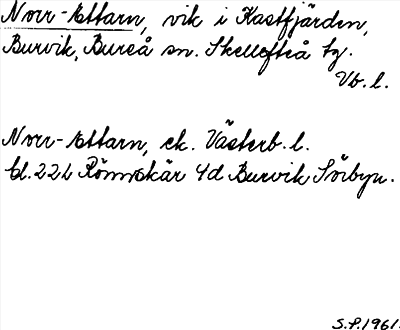 Norr-Ettarn, vik i Kastfjärden,
Burvik, Bureå sn. Skellefteå tg.
Vb. l.
Norr-Ettarn, ek. Västerb. l.
bl. 22 L Rönnskär 4d Burvik Sörbyn.
S.P. 1961.